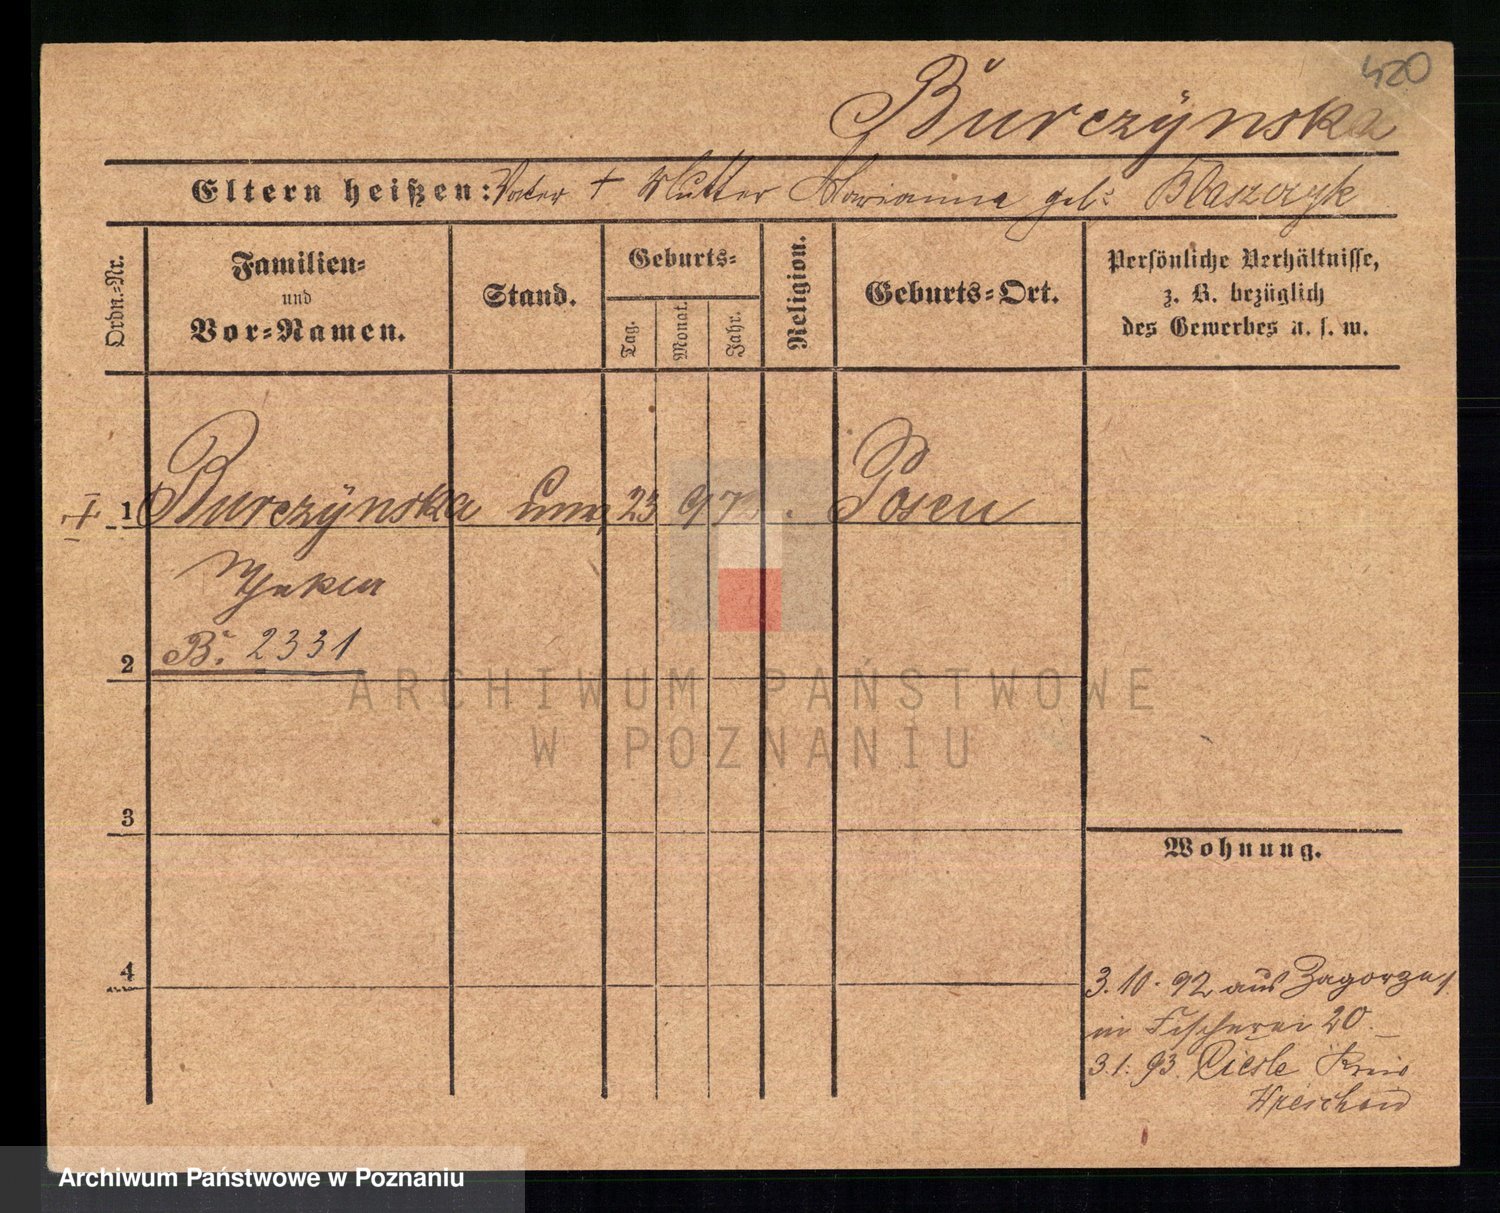 420
Burczÿnska
Eltern heißen: Vater + Mutter Marianna geb: Blaszczyk
Ordn.-Nr.
Familien-
und
Vor-Namen.
Stand.
Geburts-
Tag.
Monat.
Jahr.
Religion.
Geburts-Ort.
Persönliche Verhältnisse,
z. B. bezüglich
des Gewerbes u. s. w.
1 Burczÿnska 23 9 Posen
B. 2331
2
ARCHIWUM PAŃSTWOWE
W POZNANIU
3
Wohnung.
4
3. 10. 92 aus Zagorze
in Fischerei 20
3. 1. 93. Kreis
Wreschen
Archiwum Państwowe w Poznaniu